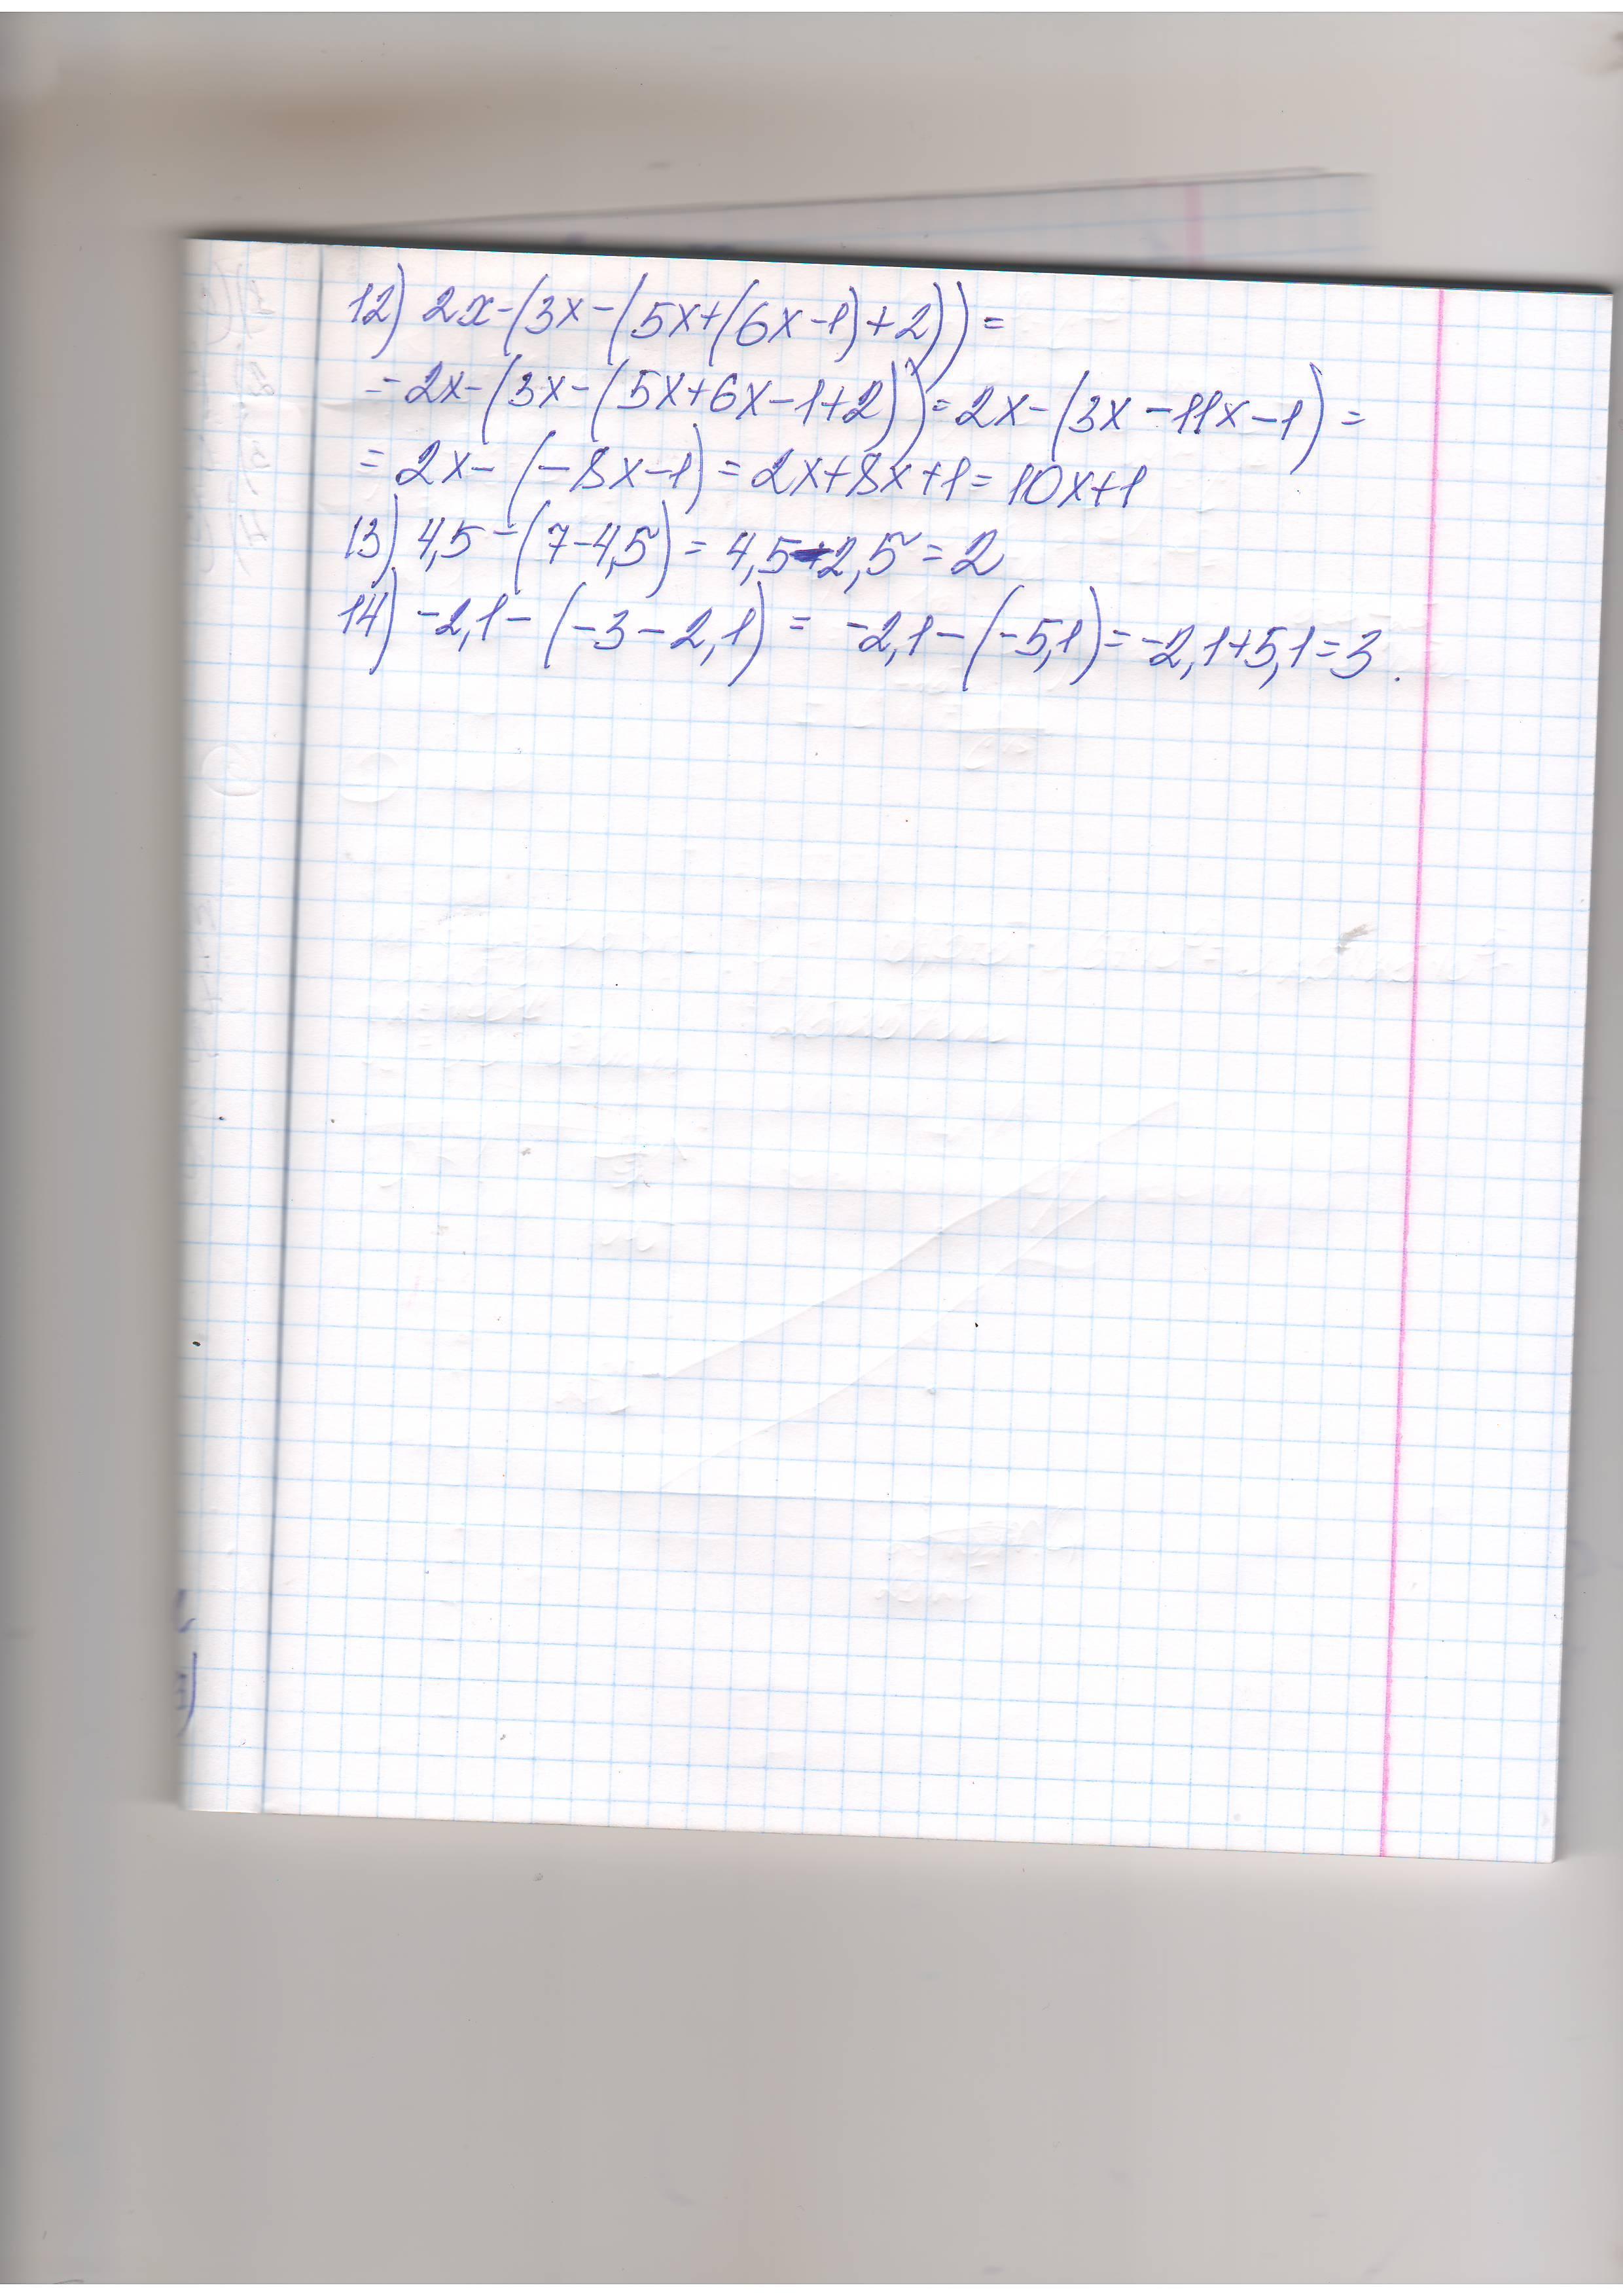 12) 2x-(3x-(5x+(6x-1)+2))=
=2x-(3x-(5x+6x-1+2))=2x-(3x-11x-1)=
=2x-(-8x-1)=2x+8x+1=10x+1
13) 4,5-(7-4,5)=4,5-2,5=2
14) -2,1-(-3-2,1)= -2,1-(-5,1)=-2,1+5,1=3.